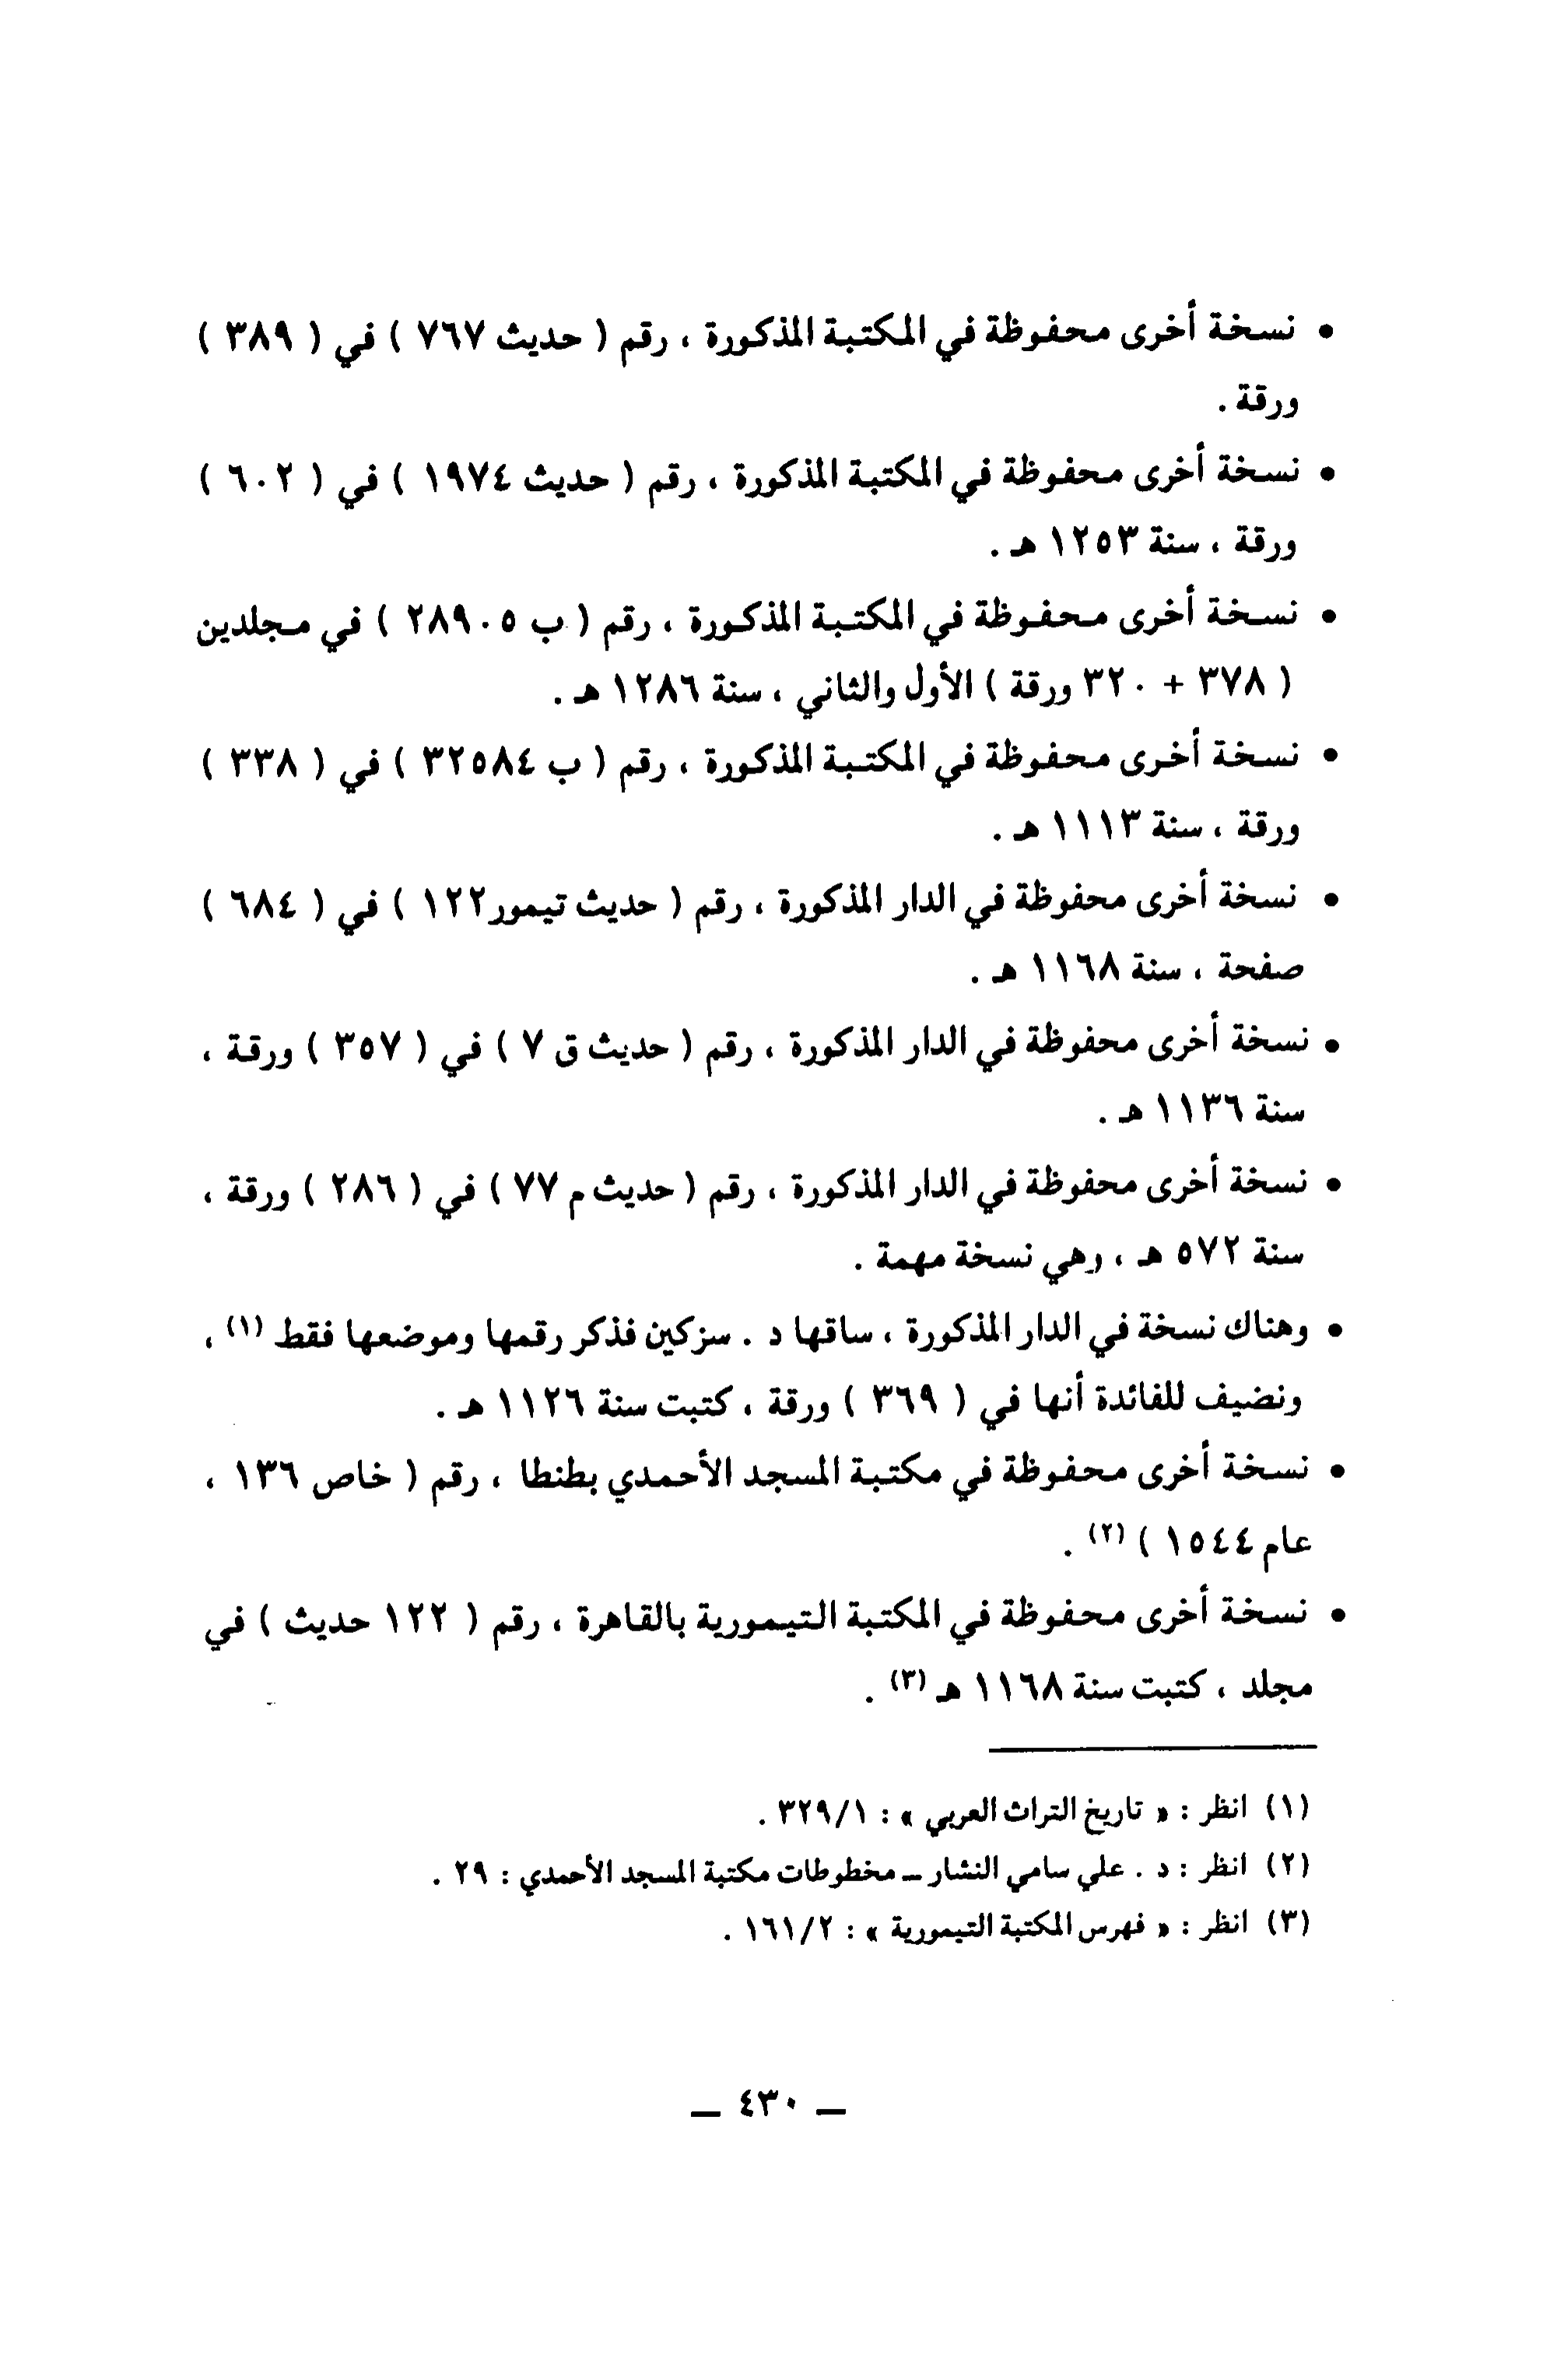 • نسخة أخرى محفوظة في المكتبة المذكورة ، رقم ( حديث ٧٦٧ ) في ( ٣٨٩ )
ورقة .
• نسخة أخرى محفوظة في المكتبة المذكورة ، رقم ( حديث ١٩٧٤ ) في ( ٦٠٢ )
ورقة ، سنة ١٢٥٣ هـ .
• نسخة أخرى محفوظة في المكتبة المذكورة ، رقم ( ب ٢٨٩٠٥ ) في مجلدين
( ٣٧٨ + ٣٢٠ ورقة ) الأول والثاني ، سنة ١٢٨٦ هـ .
• نسخة أخرى محفوظة في المكتبة المذكورة ، رقم ( ب ٣٢٥٨٤ ) في ( ٣٣٨ )
ورقة ، سنة ١١١٣ هـ .
• نسخة أخرى محفوظة في الدار المذكورة ، رقم ( حديث تيمور١٢٢ ) في ( ٦٨٤ )
صفحة ، سنة ١١٦٨ هـ .
• نسخة أخرى محفوظة في الدار المذكورة ، رقم ( حديث ق ٧ ) في ( ٣٥٧ ) ورقة ،
سنة ١١٣٦ هـ .
• نسخة أخرى محفوظة في الدار المذكورة ، رقم ( حديث م ٧٧ ) في ( ٢٨٦ ) ورقة ،
سنة ٥٧٢ هـ ، وهي نسخة مهمة .
• وهناك نسخة في الدار المذكورة ، ساقها د . سزكين فذكر رقمها وموضعها فقط (١) ،
ونضيف للفائدة أنها في ( ٣٦٩ ) ورقة ، كتبت سنة ١١٢٦ هـ .
• نسخة أخرى محفوظة في مكتبة المسجد الأحمدي بطنطا ، رقم ( خاص ١٣٦ ،
عام ١٥٤٤ ) (٢) .
• نسخة أخرى محفوظة في المكتبة التيمورية بالقاهرة ، رقم ( ١٢٢ حديث ) في
مجلد ، كتبت سنة ١١٦٨ هـ (٣) .
(١) انظر : « تاريخ التراث العربي » : ٣٢٩/١ .
(٢) انظر : د . علي سامي النشار ــ مخطوطات مكتبة المسجد الأحمدي : ٢٩ .
(٣) انظر : « فهرس المكتبة التيمورية » : ١٦١/٢ .
ــ ٤٣٠ ــ